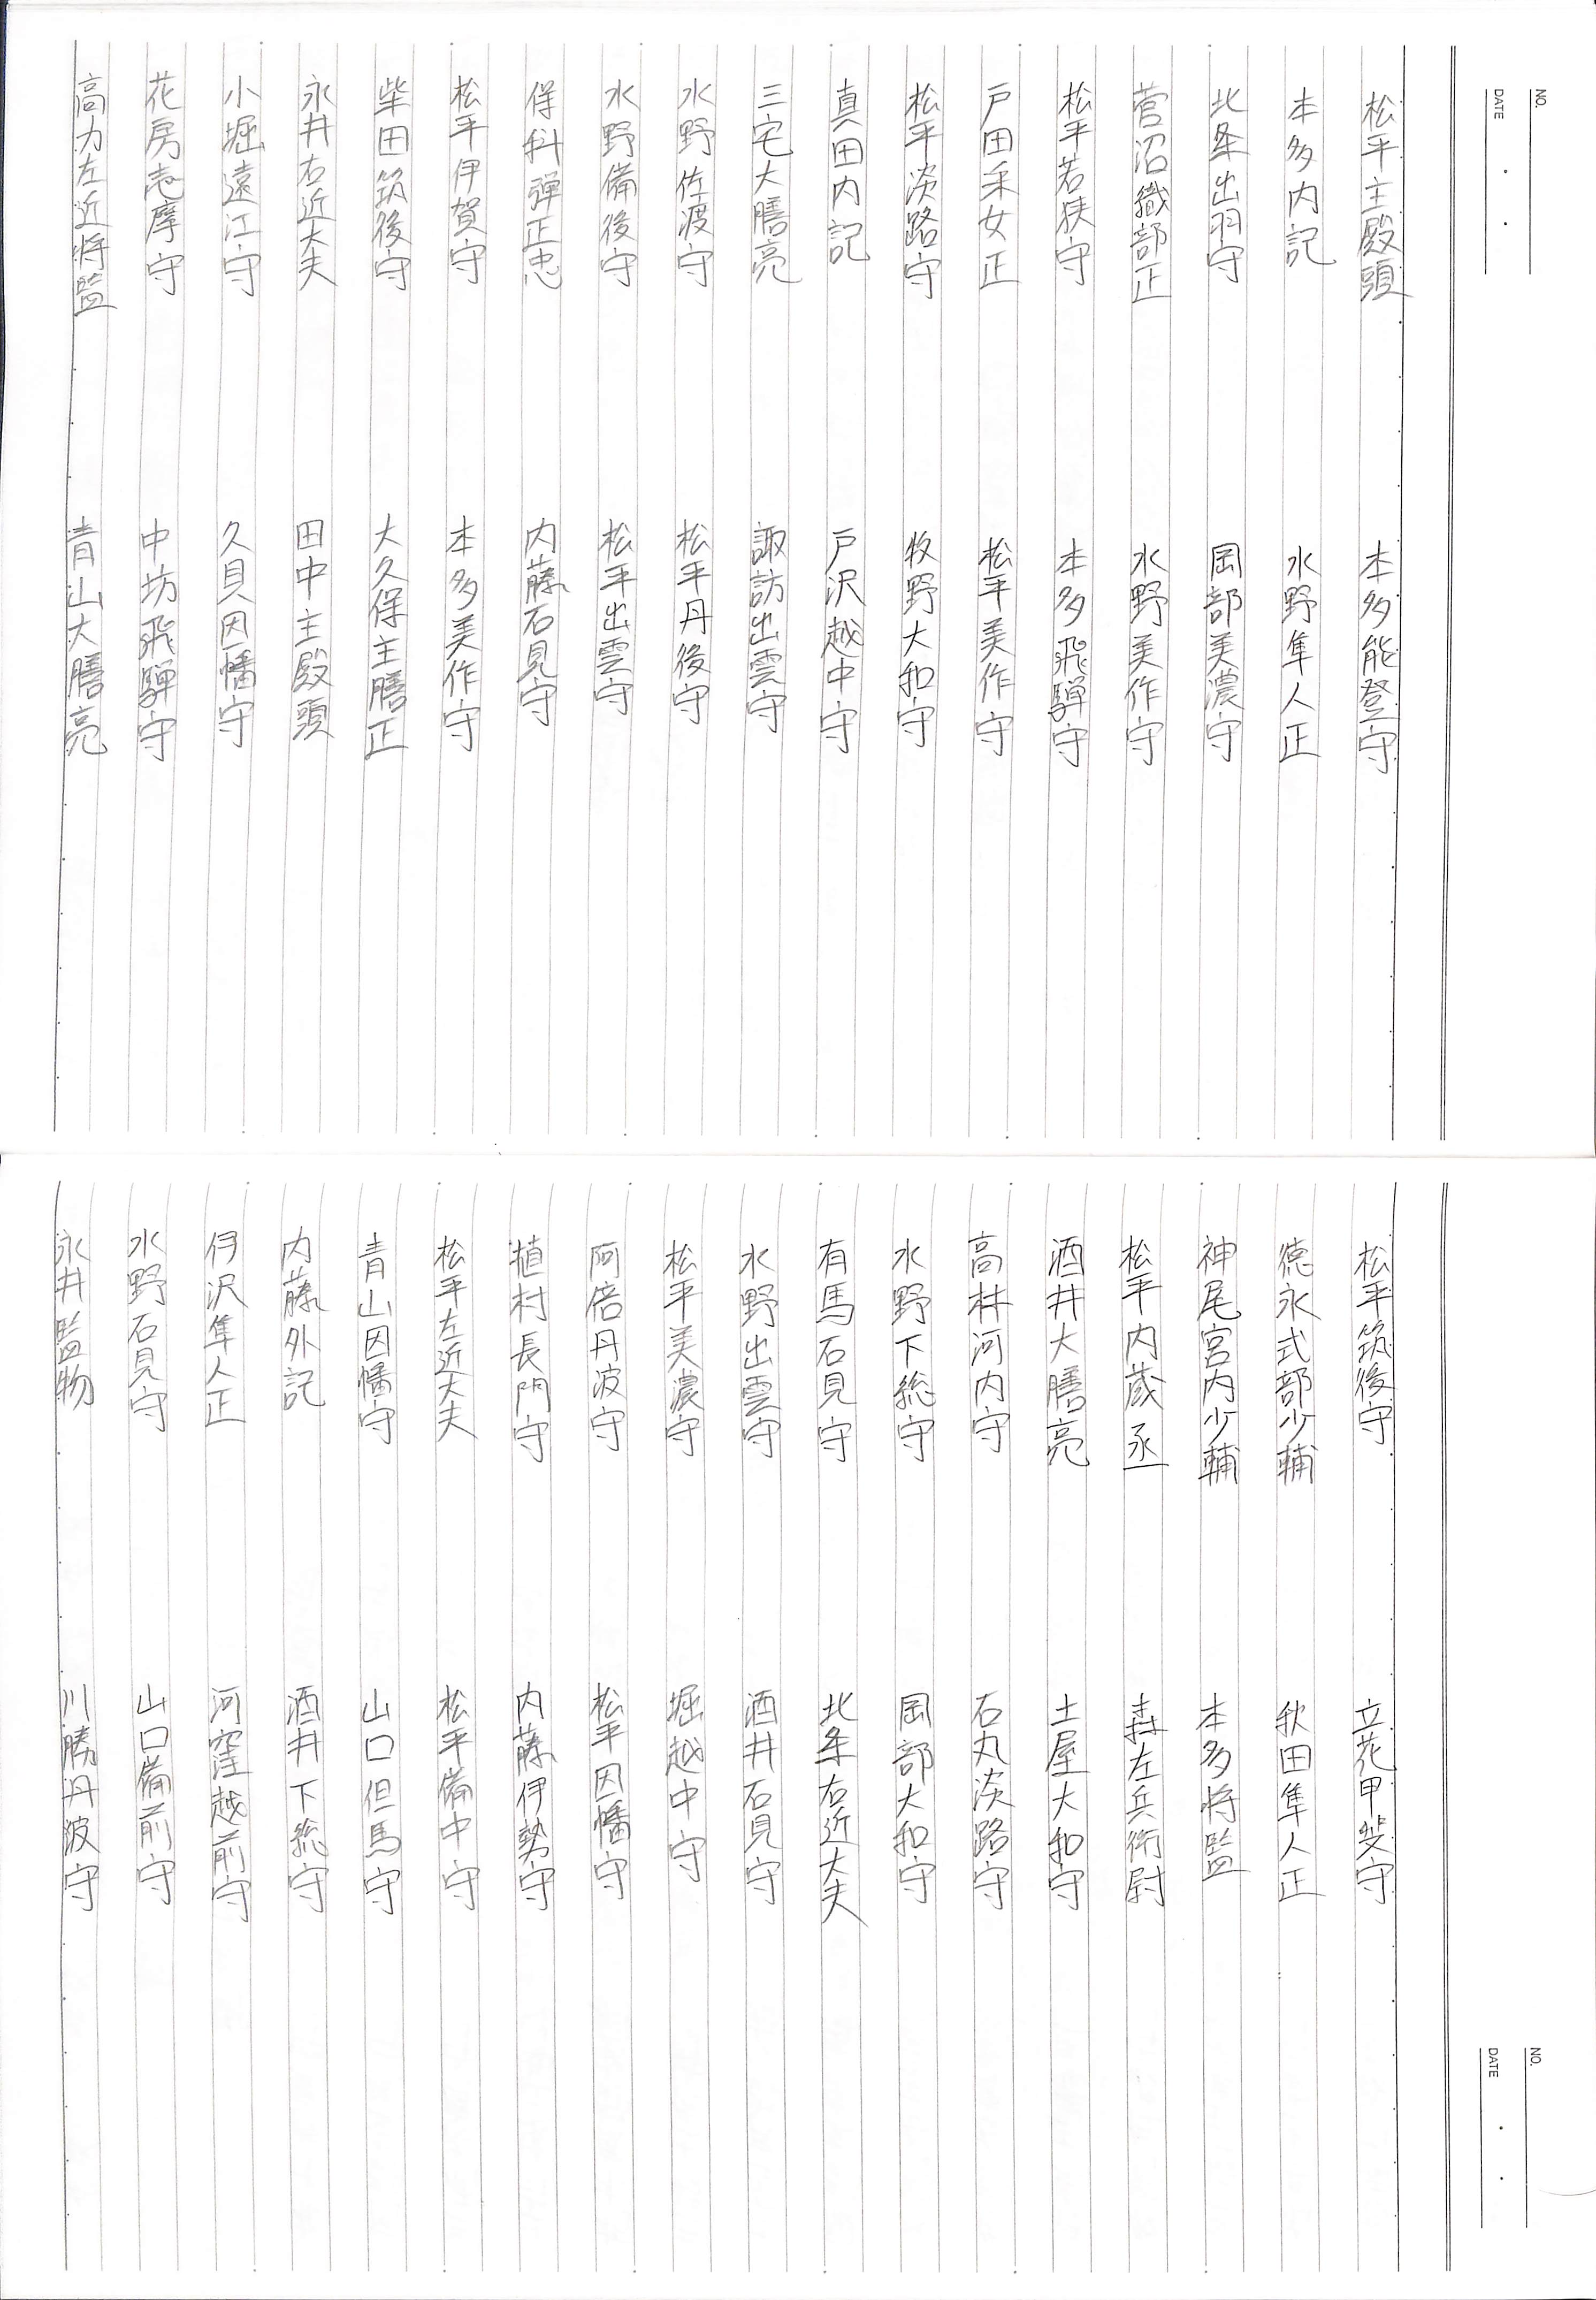 NO.
DATE
松平主殿頭
本多内記
北条出羽守
菅沼織部正
松平若狭守
戸田采女正
松平淡路守
真田内記
三宅大膳亮
水野佐渡守
水野備後守
保科弾正忠
松平伊賀守
柴田筑後守
永井右近大夫
小堀遠江守
花房志摩守
高力左近将監
本多能登守
水野隼人正
岡部美濃守
水野美作守
本多飛騨守
松平美作守
牧野大和守
戸沢越中守
諏訪出雲守
松平丹後守
松平出雲守
内藤石見守
本多美作守
大久保主膳正
田中主殿頭
久貝因幡守
中坊飛騨守
青山大膳亮
松平筑後守
徳永式部少輔
神尾宮内少輔
松平内蔵丞
酒井大膳亮
高林河内守
水野下総守
有馬石見守
水野出雲守
松平美濃守
阿倍丹波守
植村長門守
松平左近大夫
青山因幡守
内藤外記
伊沢隼人正
水野石見守
永井監物
立花甲斐守
秋田隼人正
本多将監
森左兵衛尉
土屋大和守
石丸淡路守
岡部大和守
北条右近大夫
酒井石見守
堀越中守
松平因幡守
内藤伊勢守
松平備中守
山口但馬守
酒井下総守
河窪越前守
山口備前守
川勝丹波守
NO.
DATE